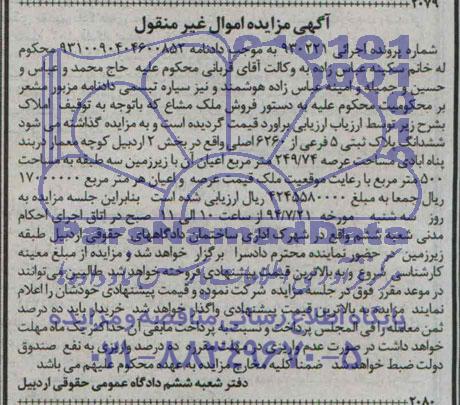 ۲۰۷۹
آگهی مزایده اموال غیر منقول
شماره پرونده اجرائی ۹۳۰۳۲۱ به موجب دادنامه ۹۳۱۰۰۹۰۴۰۴۶۰۰۸۵۳ محکوم
له خانم سکینه عباس زاده به وکالت آقای قربانی محکوم علیه حاج محمد و عباس و
حسین و جمیله و امینه عباس زاده هوشمند و نیز سیاره تبسمی دادنامه مزبور مشعر
بر محکومیت محکوم علیه به دستور فروش ملک مشاع که باتوجه به توقیف املاک
بشرح زیر توسط ارزیاب ارزیابی برآورد قیمت گردیده است و به مزایده گذاشته می شود
ششدانگ پلاک ثبتی ۵ فرعی از ۶۲۶۰ اصلی واقع در بخش ۲ اردبیل کوچه معمار دربند
پناه ابادی مساحت عرصه ۲۴۹/۷۴ متر مربع اعیان آن با زیرزمین سه طبقه به مساحت
۵۰۰ متر مربع با رعایت موقعیت ملک قیمت عرصه و اعیان هر متر مربع ۱۷۰۰۰۰۰۰
ریال جمعا به مبلغ ۴۲۴۵۵۸۰۰۰۰ ریال ارزیابی شده است بنابراین جلسه مزایده به
روز سه شنبه مورخه ۹۴/۷/۲۱ از ساعت ۱۰ الی ۱۱ صبح در اتاق اجرای احکام
مدنی شعبه ششم واقع در شهرک اداری ساختمان دادگاههای حقوقی اردبیل طبقه
زیرزمین در حضور نماینده محترم دادسرا برگزار خواهد شد و مزایده از مبلغ معینه
کارشناسی شروع و به بالاترین قیمت پیشنهادی فروخته خواهد شد طالبین می توانند
در موعد مقرر فوق در جلسه مزایده شرکت نموده و قیمت پیشنهادی خودشان را اعلام
نمایند مزایده به بالاترین قیمت پیشنهادی واگذار خواهد شد خریدار باید ده درصد
ثمن معامله را فی المجلس پرداخت و نسبت به پرداخت مابقی آن حداکثر یک ماه مهلت
خواهد داشت در صورت عدم واریز در مهلت مقرره ده درصد واریزی به نفع صندوق
دولت ضبط خواهد شد ضمنا کلیه مخارج مزایده به عهده محکوم علیهم می باشد
دفتر شعبه ششم دادگاه عمومی حقوقی اردبیل
۲۰۸۰
ParsNamadData
پایگاه اطلاع رسانی مناقصه و مزایده
۰۲۱-۸۸۳۴۹۶۷۰-۵